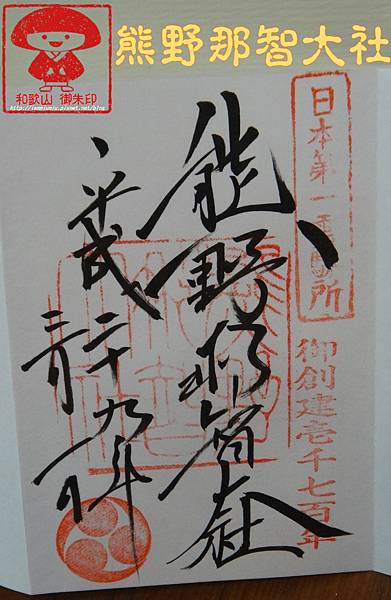 熊野那智大社
和歌山 御朱印
日本第一霊験所
御創建壱千七百年
熊野那智大社
平成二十九年